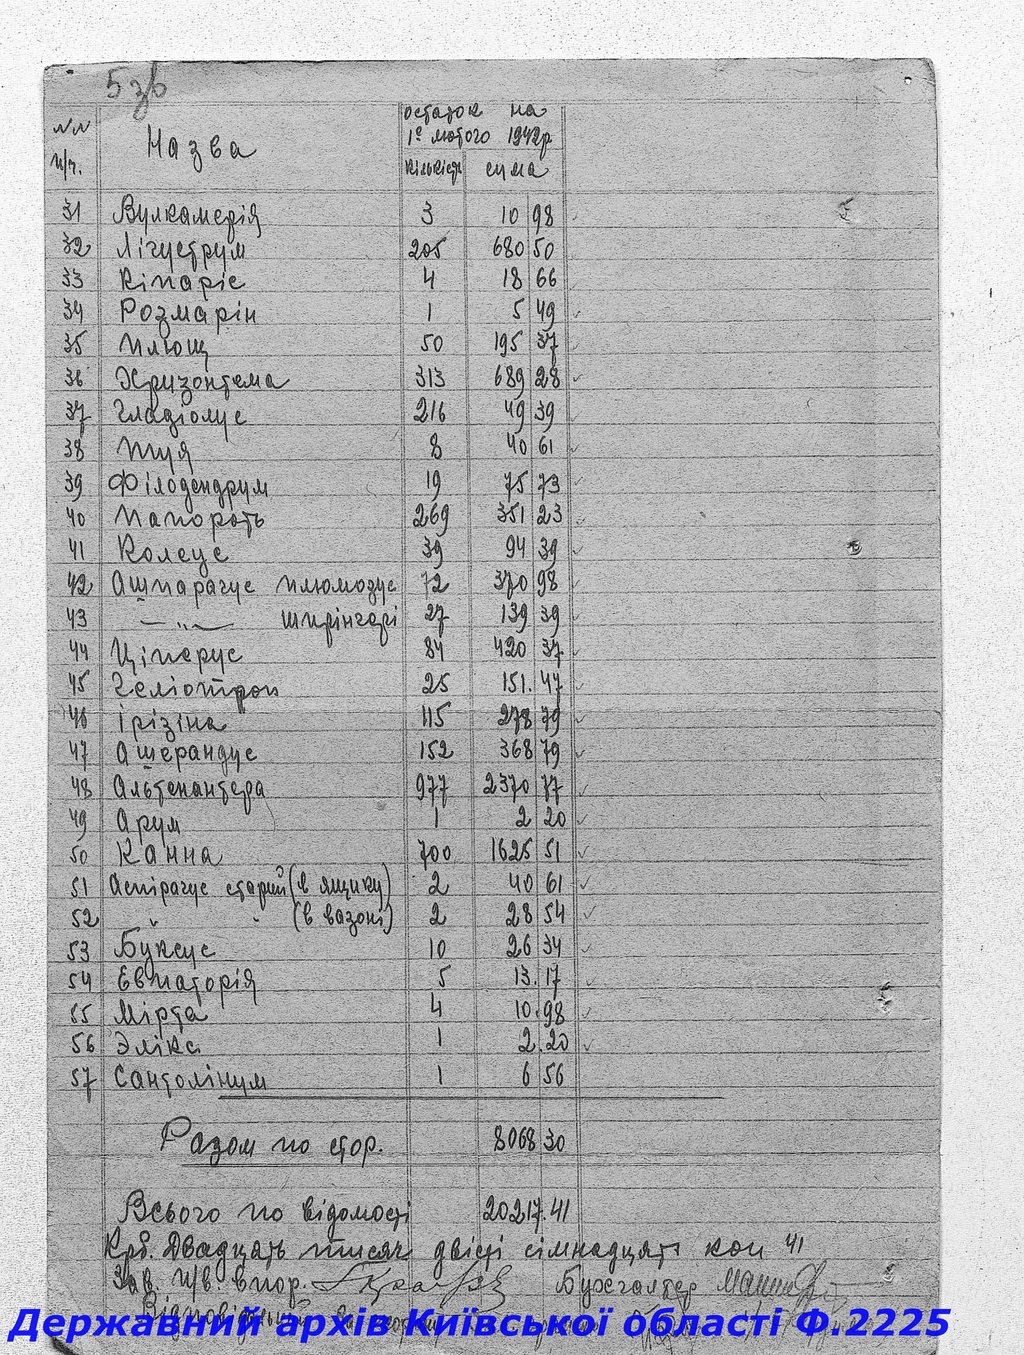 53б
NN п/ч. Назва остаток на 1го лютого 1942р.
кількість сума
31 Вулкамерія 3 10 98
32 Лігуструм 205 680 50
33 Кіпаріс 4 18 66
34 Розмарін 1 5 49
35 Плющ 50 195 37
36 Хризонтема 313 689 28
37 Гладіолус 216 49 39
38 Туя 8 40 61
39 Філодендрум 19 75 73
40 Папороть 269 351 23
41 Колеус 39 94 39
42 Ашпарагус плюмозус 72 370 98
43 —„— шпрінгері 27 139 39
44 Ціперус 84 420 37
45 Геліотроп 25 151. 47
46 ірізіна 115 278 79
47 Ашерандус 152 368 79
48 Альтенантера 977 2370 77
49 Арум 1 2 20
50 Канна 700 1625 51
51 Аспірагус старий (в ящику) 2 40 61
52 " " (в вазоні) 2 28 54
53 Буксус 10 26 34
54 Евпаторія 5 13. 17
55 Мірта 4 10. 98
56 Эліка 1 2. 20
57 Сантолінум 1 6 56
Разом по стор. 8068 30
Всього по відомості 20217. 41
Крб. Двадцать тисяч двісті сімнадцять коп 41
Зав. п/в. впор. Бухгалтер
Відповідальний
Державний архів Київської області Ф.2225